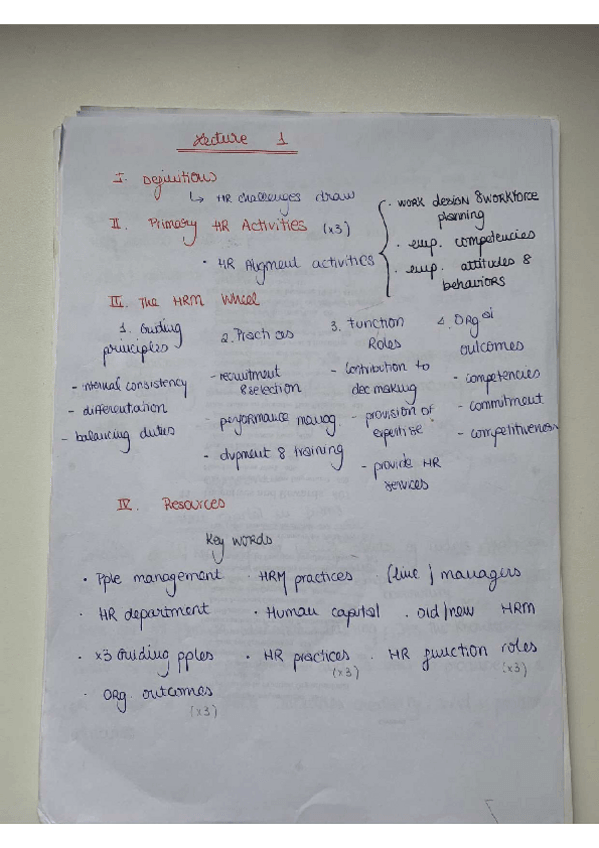 Lecture 1
I. Definitions
↳ HR challenges draw
II. Primary HR Activities (x3)
• HR Alignment activities
• work design & workforce planning
• emp. competencies
• emp. attitudes & behaviors
III. The HRM Wheel
1. Guiding principles
- internal consistency
- differentation
- balancing duties
2. Practices
- recruitment & selection
- performance manag.
- dvpment & training
3. Function Roles
- contribution to dec making
- provision of expertise
- provide HR services
4. ORG outcomes
- competencies
- commitment
- competitiveness
IV. Resources
Key words
• Pple management • HRM practices • (line) managers
• HR department • Human capital • old/new HRM
• x3 Guiding pples • HR practices (x3) • HR function roles (x3)
- ORG. outcomes (x3)